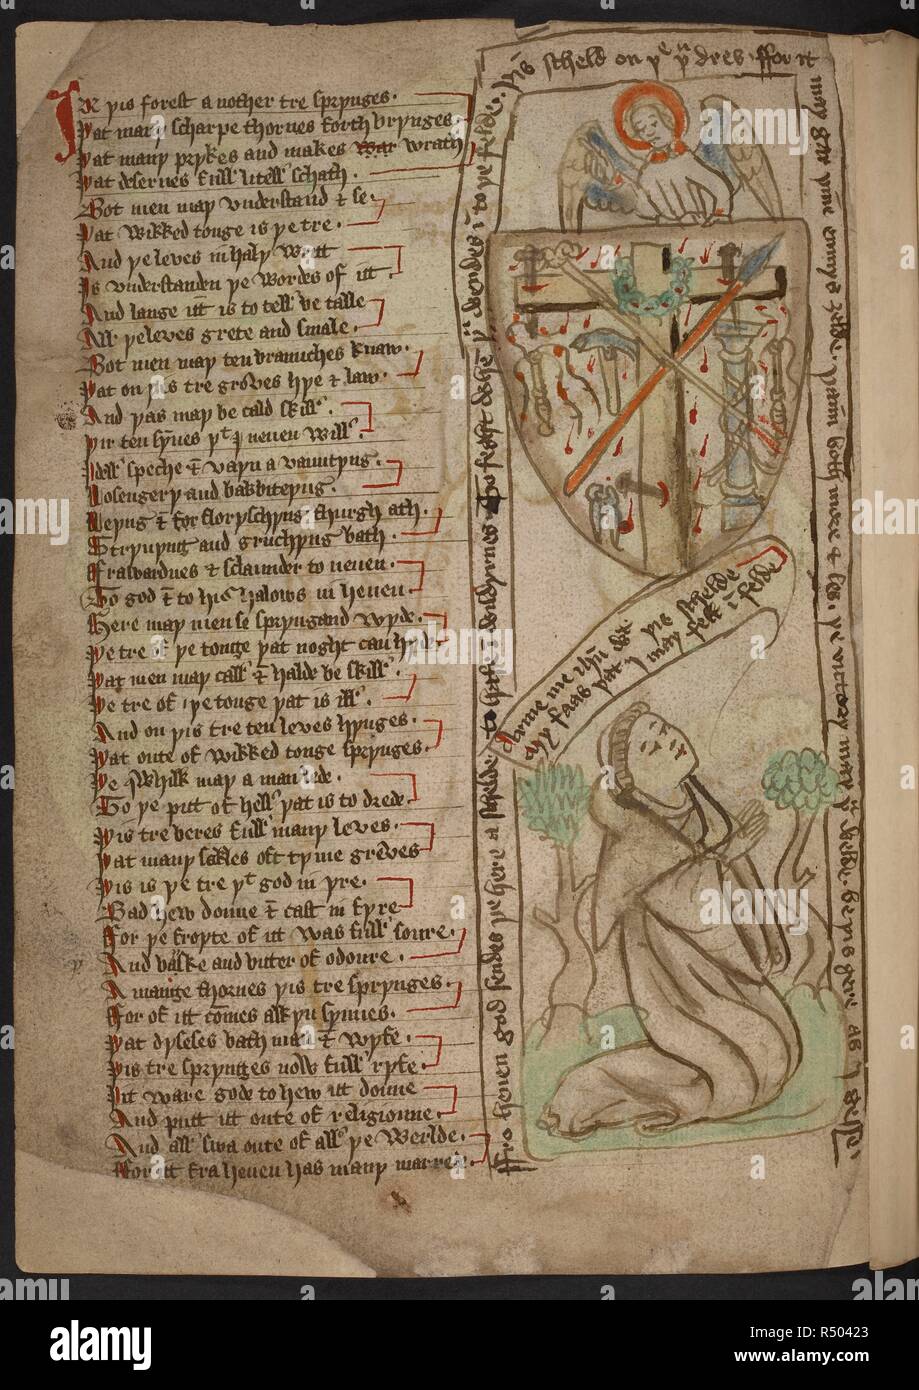 In þis forest a nother tre sprynges.
Þat mary scharpe thornes forth vrynges.
Þat many prykes and makes war wrath
Þat deserves full litell schath.
Bot men may vnderstand & se
Þat wikked tonge is þe tre.
And þe leves in haly writt
Is vnderstanden þe wordes of itt.
And lange itt is to tell be talle
All þe leves grete and smale.
Bot men may ten braunches knaw.
Þat on þis tre groves hye & law.
And þas may be cald skill
Þir ten synes þt I neuen will.
Idell speche & vayn a vauntyng.
Losengery and bakbiteyng.
Leyng & forsloryschyng thurgh ath.
Stryuyng and gruchyng bath.
Frawardnes & sclaunder to neuen.
To god & to his halows in heuen
Here may men se spryng and wyde.
Þe tre of þe tonge þat noght can hyde
Þat men may call & halde be skill
Þe tre of þe tonge þat is ill.
And on þis tre ten leves hynges.
Þat oute of wikked tonge sprynges.
Þe qwhilk may a man lede.
To þe pitt of hell þat is to drede.
Þis tre beres full many leves.
Þat many saules oft tyme greves
Þis is þe tre þt god in yre.
Bad hew doune & cast in fyre
For þe froyte of itt was full soure.
And waske and bitter of odoure.
A mange thornes þis tre sprynges.
For of itt comes all kyn synnes.
Þat dyseses bath man & wyfe.
Þis tre sprynges now full ryfe.
Itt ware gode to hew itt doune
And putt itt oute of religioune.
And all swa oute of all þe werlde.
For itt fra heuen has many marred.
Fro heuen god sendes þe here a schelde to hafe i mydynes
þu wendes i to þe felde.
Þis scheld on þe þu dres. ffor it
may ger þine enmys zelde.
both more & les. þe victory may þu welde. be þis gere as I gesse.
Arme me ihu
my faas þat I þis schelde
may felt i felde
alamy
Image ID: R50423
www.alamy.com